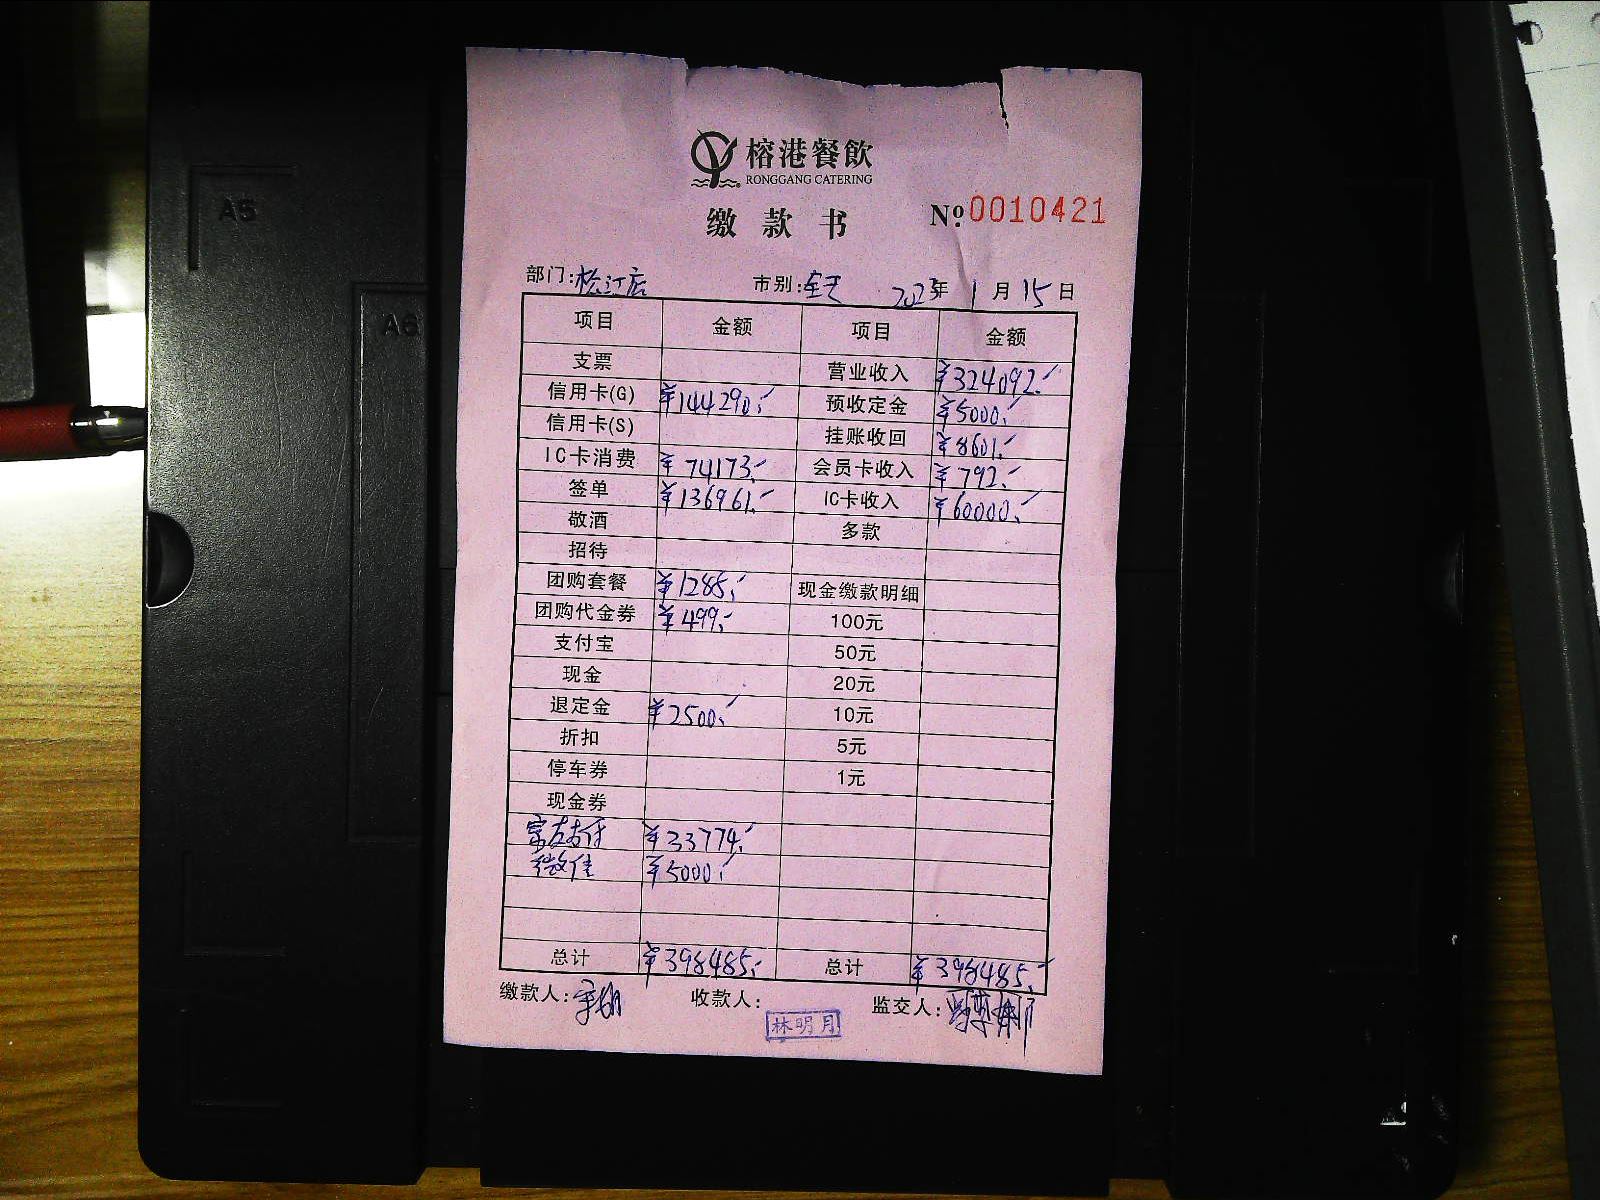 榕港餐飲
RONGGANG CATERING
缴款书 №0010421
部门:松江店 市别:全天 2023年1月15日
项目 金额 项目 金额
支票 营业收入 ¥324092.-
信用卡(G) ¥144290.- 预收定金 ¥5000.-
信用卡(S) 挂账收回 ¥8601.-
IC卡消费 ¥74173.- 会员卡收入 ¥792.-
签单 ¥136961.- IC卡收入 ¥60000.-
敬酒 多款
招待
团购套餐 ¥1285.- 现金缴款明细
团购代金券 ¥499.- 100元
支付宝 50元
现金 20元
退定金 ¥2500.- 10元
折扣 5元
停车券 1元
现金券
¥33774.-
微信 ¥5000.-
总计 ¥398485.- 总计 ¥398485.-
缴款人: 收款人: 监交人:
林明月
A5
A6